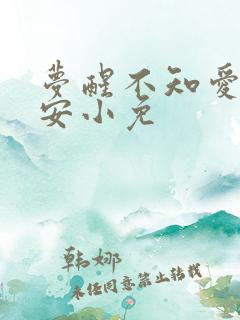 夢醒不知愛
安小免
韩娜
未经同意禁止转载